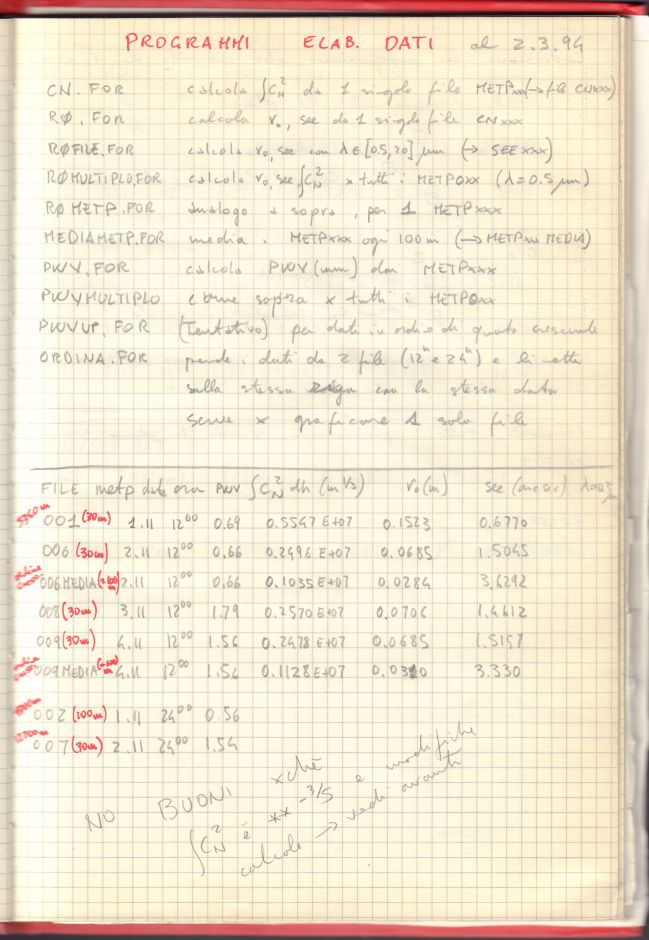 PROGRAMMI ELAB. DATI al 2.3.94
CN.FOR calcola ∫C_N^2 da 1 singolo file METPxxx(→file CNxxx)
RØ.FOR calcola r₀, see da 1 singolo file CNxxx
RØFILE.FOR calcola r₀, see con λ∈[0.5,20] μm (→ SEExxx)
RØMULTIPLO.FOR calcola r₀, see, ∫C_N^2 x tutti i METPOxx (λ=0.5 μm)
RØMETP.FOR analogo a sopra, per 1 METPxxx
MEDIAMETP.FOR media i METPxxx ogni 100m (→METPxxx MEDIA)
PWV.FOR calcola PWV(mm) dai METPxxx
PWVMULTIPLO come sopra x tutti i METPOxx
PWVUP.FOR (Tentativo) per dati in ordine di quota crescente
ORDINA.FOR prende i dati da 2 file (12ʰ e 24ʰ) e li mette
sulla stessa riga con la stessa data
serve x graficare 1 solo file
FILE metp data ora PWV ∫C_N^2 dh (m^1/3) r₀(m) see (arcsec)
001 (30m) 1.11 12⁰⁰ 0.69 0.5547 E+07 0.1523 0.6770
006 (30m) 2.11 12⁰⁰ 0.66 0.2496 E+07 0.0685 1.5045
006 MEDIA 2.11 12⁰⁰ 0.66 0.1035 E+07 0.0284 3.6292
008 (30m) 3.11 12⁰⁰ 1.79 0.2570 E+07 0.0706 1.4612
009 (30m) 4.11 12⁰⁰ 1.56 0.2478 E+07 0.0685 1.5157
009 MEDIA 4.11 12⁰⁰ 1.54 0.1128 E+07 0.0310 3.330
002 (100m) 1.11 24⁰⁰ 0.56
007 (30m) 2.11 24⁰⁰ 1.54
NO BUONI xchè
∫C_N^2 è ** -3/5 e modifiche
calcolo → vedi avanti